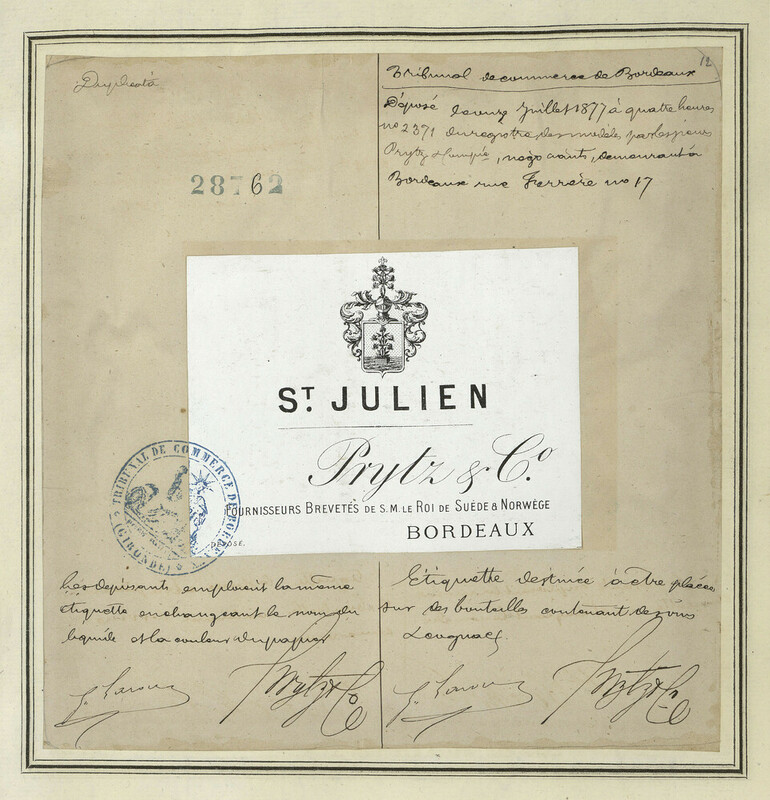 Duplicata
12
Tribunal de commerce de Bordeaux
Déposé le onze Juillet 1877 à quatre heures
no 2371 du registre des modèles par les sieurs
Prytz & Compie, négociants, demeurant à
Bordeaux rue Ferrère no 17
28762
ST. JULIEN
Prytz & Co.
FOURNISSEURS BREVETÉS DE S.M. LE ROI DE SUÈDE & NORWÈGE
BORDEAUX
DÉPOSÉ.
TRIBUNAL DE COMMERCE DE BORDEAUX
(GIRONDE)
Les déposants emploient la même
étiquette en changeant le nom du
liquide et la couleur du papier
Etiquette destinée à être placée
sur des bouteilles contenant des vins
& cognacs
Prytz & Co
Prytz & Co